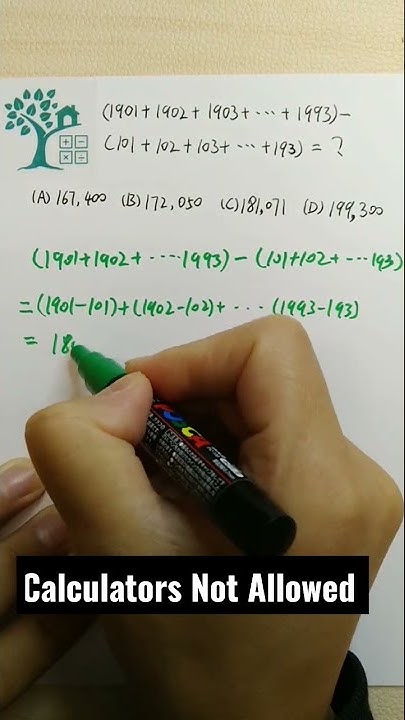 (1901+1902+1903+···+1993)−
(101+102+103+···+193)=?
(A) 167,400 (B) 172,050 (C) 181,071 (D) 199,300
(1901+1902+····1993)−(101+102+···193)
=(1901−101)+(1902−102)+···· (1993−193)
= 18
Calculators Not Allowed